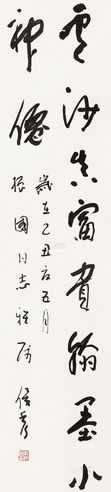 雲沙真富貴翰墨小
神僊
歲在乙丑夏五月
振國同志雅屬